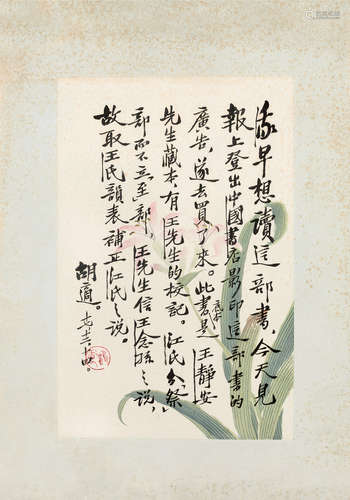 我早想讀這部書，今天見
報上登出中國書店影印這部書的
廣告，遂去買了來。此書底本是王靜安
先生藏本，有王先生的校記。江氏分祭
部而不立至部，王先生信王念孫之說，
故取王氏韻表補正江氏之說。
胡適。